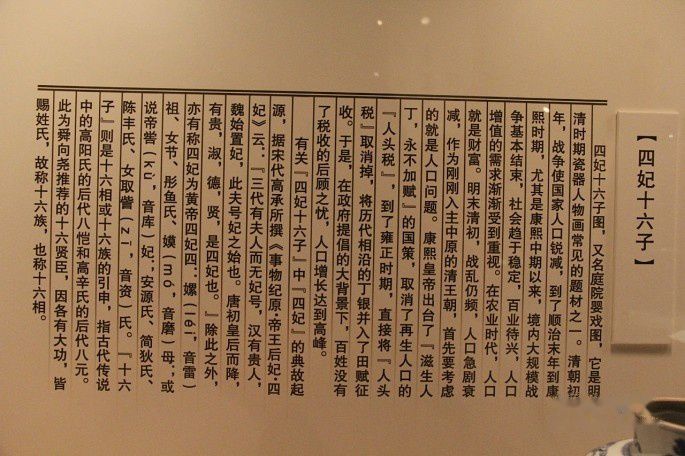 【四妃十六子】
四妃十六子图，又名庭院婴戏图，它是明
清时期瓷器人物画常见的题材之一。清朝初
年，战争使国家人口锐减，到了顺治末年到康
熙时期，尤其是康熙中期以来，境内大规模战
争基本结束，社会趋于稳定，百业待兴，人口
增值的需求渐渐受到重视。在农业时代，人口
就是财富。明末清初，战乱仍频，人口急剧衰
减，作为刚刚入主中原的清王朝，首先要考虑
的就是人口问题。康熙皇帝出台了『滋生人
丁，永不加赋』的国策，取消了再生人口的
『人头税』，到了雍正时期，直接将『人头
税』取消掉，将历代相沿的丁银并入了田赋征
收。于是，在政府提倡的大背景下，百姓没有
了税收的后顾之忧，人口增长达到高峰。
有关『四妃十六子』中『四妃』的典故起
源，据宋代高承所撰《事物纪原·帝王后妃·四
妃》云：『三代有夫人而无妃号，汉有贵人，
魏始置妃，此夫号妃之始也。唐初皇后而降，
有贵，淑，德，贤，是四妃也。』除此之外，
亦有称四妃为黄帝四妃四：嫘（léi，音雷）
祖、女节、彤鱼氏、嫫（mó，音磨）母；或
说帝喾（kù，音库）妃；安源氏、简狄氏、
陈丰氏、女取訾（zī，音资）氏。『十六
子』则是十六相或十六族的引申，指古代传说
中的高阳氏的后代八恺和高辛氏的后代八元。
此为舜向尧推荐的十六贤臣，因各有大功，皆
赐姓氏，故称十六族，也称十六相。